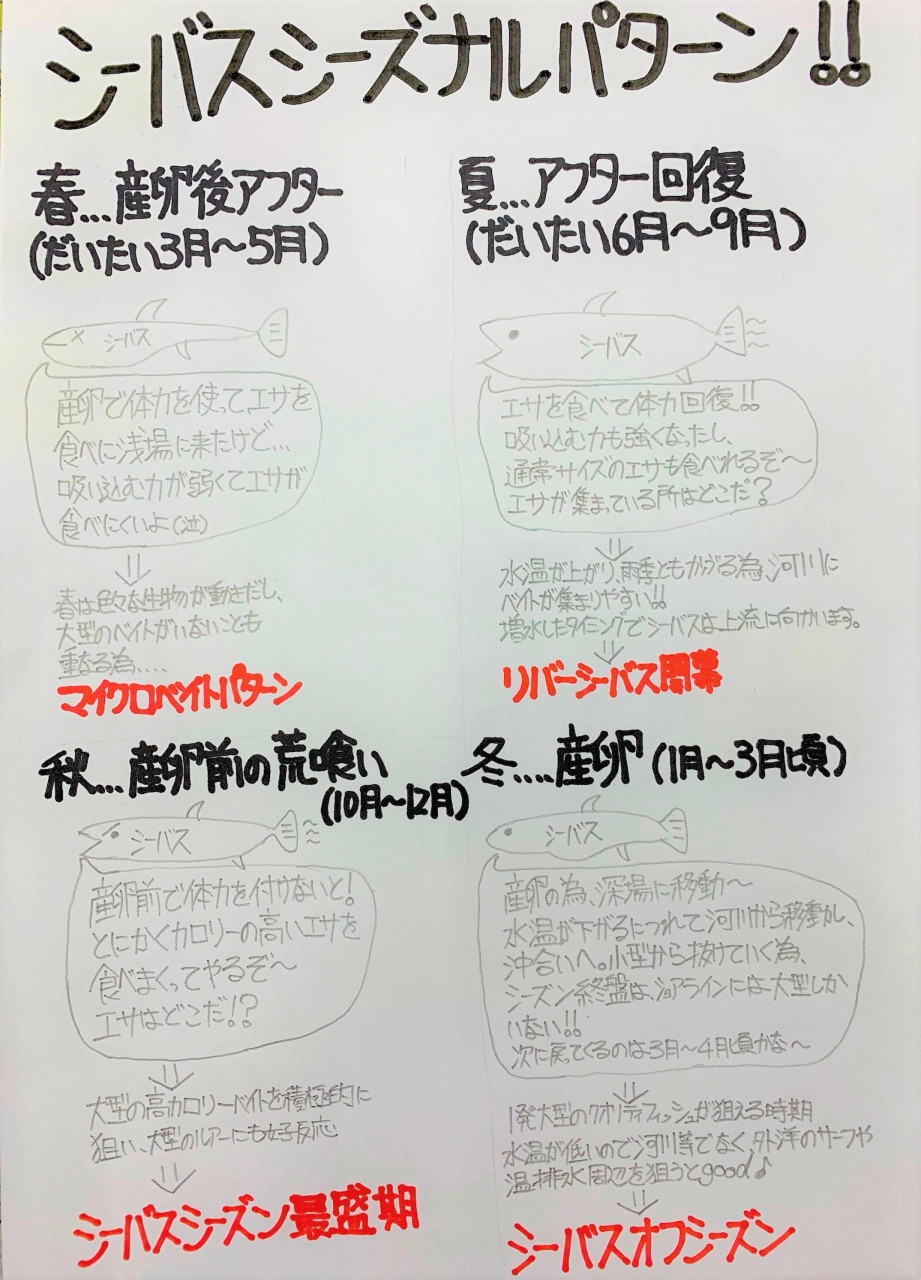 シーバスシーズナルパターン!!
春...産卵後アフター
(だいたい3月〜5月)
シーバス
産卵で体力を使って、エサを
食べに浅場に来たけど...
吸い込む力が弱くてエサが
食べにくいよ(泣)
春は色々な生物が動きだし、
大型のベイトがいないことも
重なる為....
マイクロベイトパターン
夏...アフター回復
(だいたい6月〜9月)
シーバス
エサを食べて体力回復!!
吸い込む力も強くなったし、
通常サイズのエサも食べれるぞ〜
エサが集まっている所はどこだ?
水温が上がり、雨季ともかぶる為、河川に
ベイトが集まりやすい!!
増水したタイミングでシーバスは上流に向かいます。
リバーシーバス開幕
秋...産卵前の荒喰い
(10月〜12月)
シーバス
産卵前で体力を付けないと!
とにかくカロリーの高いエサを
食べまくってやるぞ〜
エサはどこだ!?
大型の高カロリーベイトを積極的に
狙い、大型のルアーにも好反応
シーバスシーズン最盛期
冬....産卵(1月〜3月頃)
シーバス
産卵の為、深場に移動〜
水温が下がるにつれて河川から移動し、
沖合いへ。小型から抜けていく為、
シーズン終盤は、ショアラインには大型しか
いない!!
次に戻ってくるのは3月〜4月頃かな〜
1発大型のクオリティフィッシュが狙える時期
水温が低いので河川等でなく、外洋のサーフや
温排水周辺を狙うとgood♪
シーバスオフシーズン